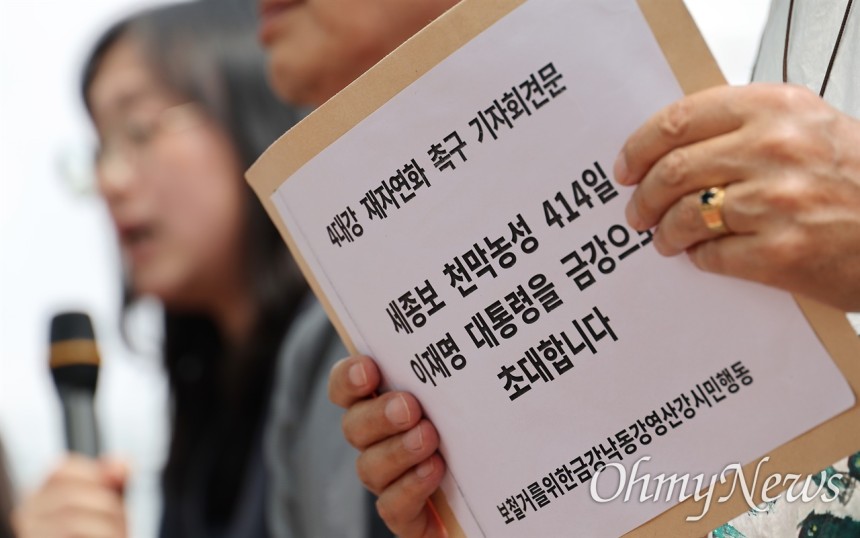 4대강 재자연화 촉구 기자회견문
세종보 천막농성 414일
이재명 대통령을 금강으로
초대합니다
보철거를위한금강낙동강영산강시민행동
OhmyNews